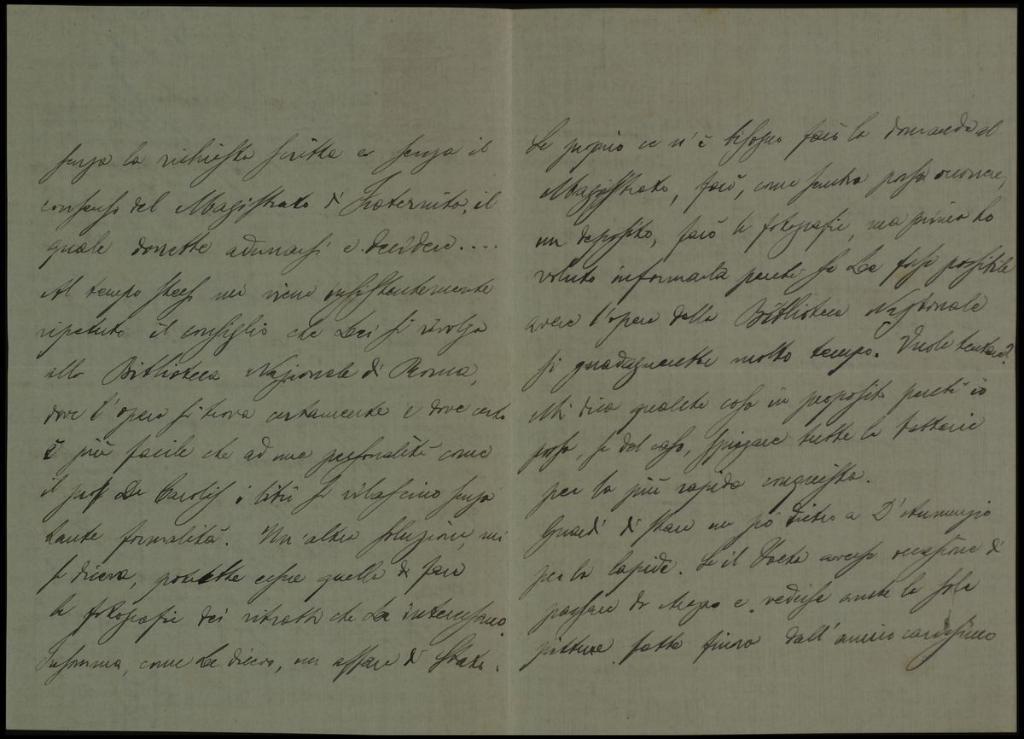 senza la richiesta scritta e senza il
consenso del Magistrato di Fraternita, il
quale dovrebbe adunarsi e decidere....
Al tempo stesso mi viene insistentemente
ripetuto il consiglio che Lei si rivolga
alla Biblioteca Nazionale di Roma,
dove l'opera si trova certamente e dove certo
è più facile che ad una personalità come
il prof De Carolis i libri si rilascino senza
tante formalità. Un'altra soluzione, mi
si diceva, potrebbe essere quella di fare
le fotografie dei ritratti che La interessano.
Insomma, come Le dicevo, un affare di Stato.
Se proprio ce n'è bisogno farò la domanda al
Magistrato, farò, come sembra possa occorrere,
un deposito, farò le fotografie, ma prima ho
voluto informarla perché se Le fosse possibile
avere l'opera dalla Biblioteca Nazionale
si guadagnerebbe molto tempo. Vuole tentare?
Mi dica qualche cosa in proposito perché io
possa, se del caso, spiegare tutte le batterie
per la più rapida conquista.
Guardi di stare un po' dietro a D'Annunzio
per la lapide. Se il Poeta avesse occasione di
passare da Arezzo e vedesse anche le sole
pitture fatte finora dall'amico carissimo